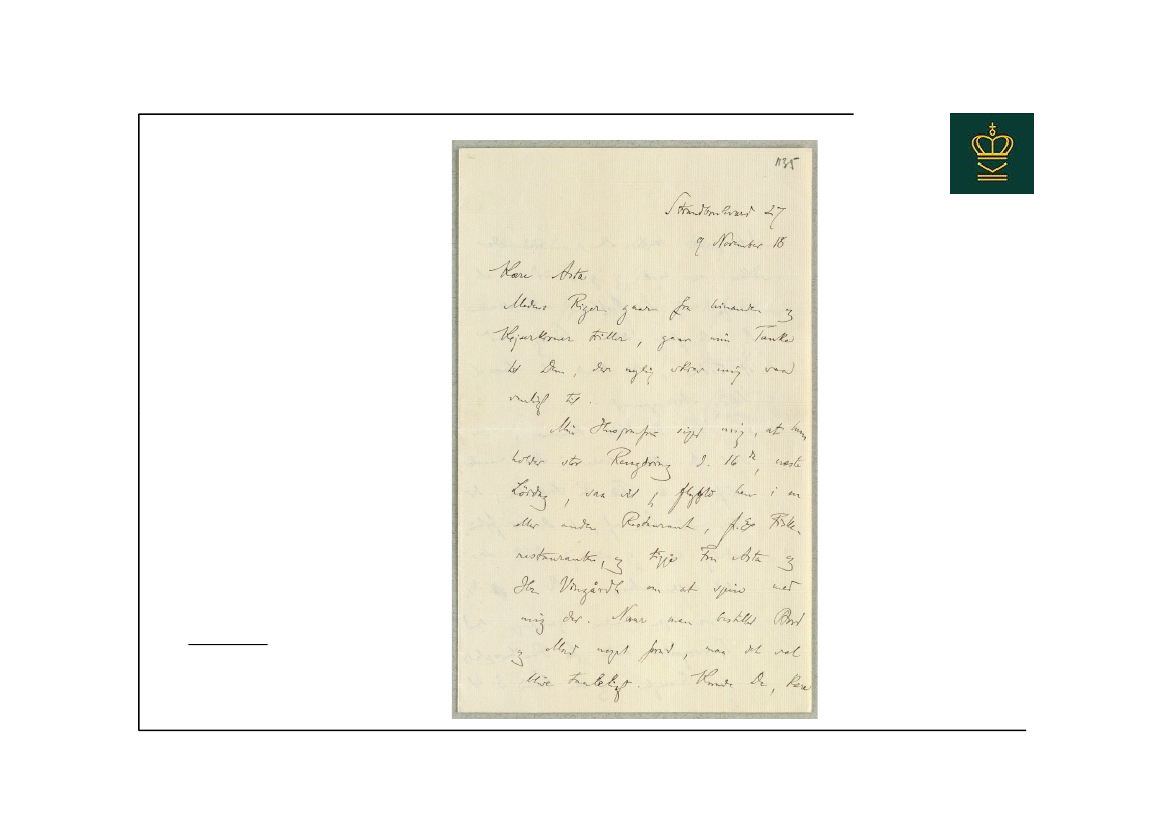 1135
Strandboulevard 27
9 November 18
Kære Asta
Medens Riger gaar fra hinanden og
Kejserkroner triller, gaar min Tanke
til Dem, der nylig skrev mig saa
venligt til.
Min Husjomfru siger mig, at hun
holder stor Rengöring d. 16de, næste
Lördag, saa vil jeg flygte hen i en
eller anden Restaurant, f. Ex Fiske-
restauranten, og tigge Fru Asta og
Hr. Vingårdh om at spise med
mig der. Naar man bestiller Bord
og Mad noget forud, maa det vel
blive taaleligt. Kunde De, kære